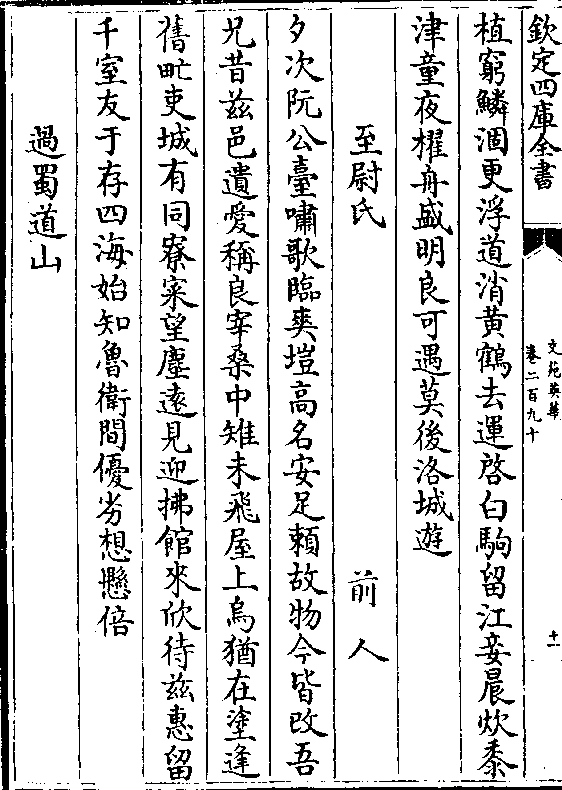 欽定四庫全書
文苑英華
卷二百九十
十一
植窮鱗涸更浮道消黄鶴去運啓白駒留江妾晨炊黍
津童夜櫂舟盛明良可遇莫後洛城遊
至尉氏 前人
夕次阮公臺嘯歌臨爽塏高名安足頼故物今皆改吾
兄昔兹邑遺愛稱良宰桑中雉未飛屋上烏猶在塗逢
舊甿吏城有同寮寀望塵遠見迎拂館來欣待兹惠留
千室友于存四海始知魯衛間優劣想懸倍
過蜀道山